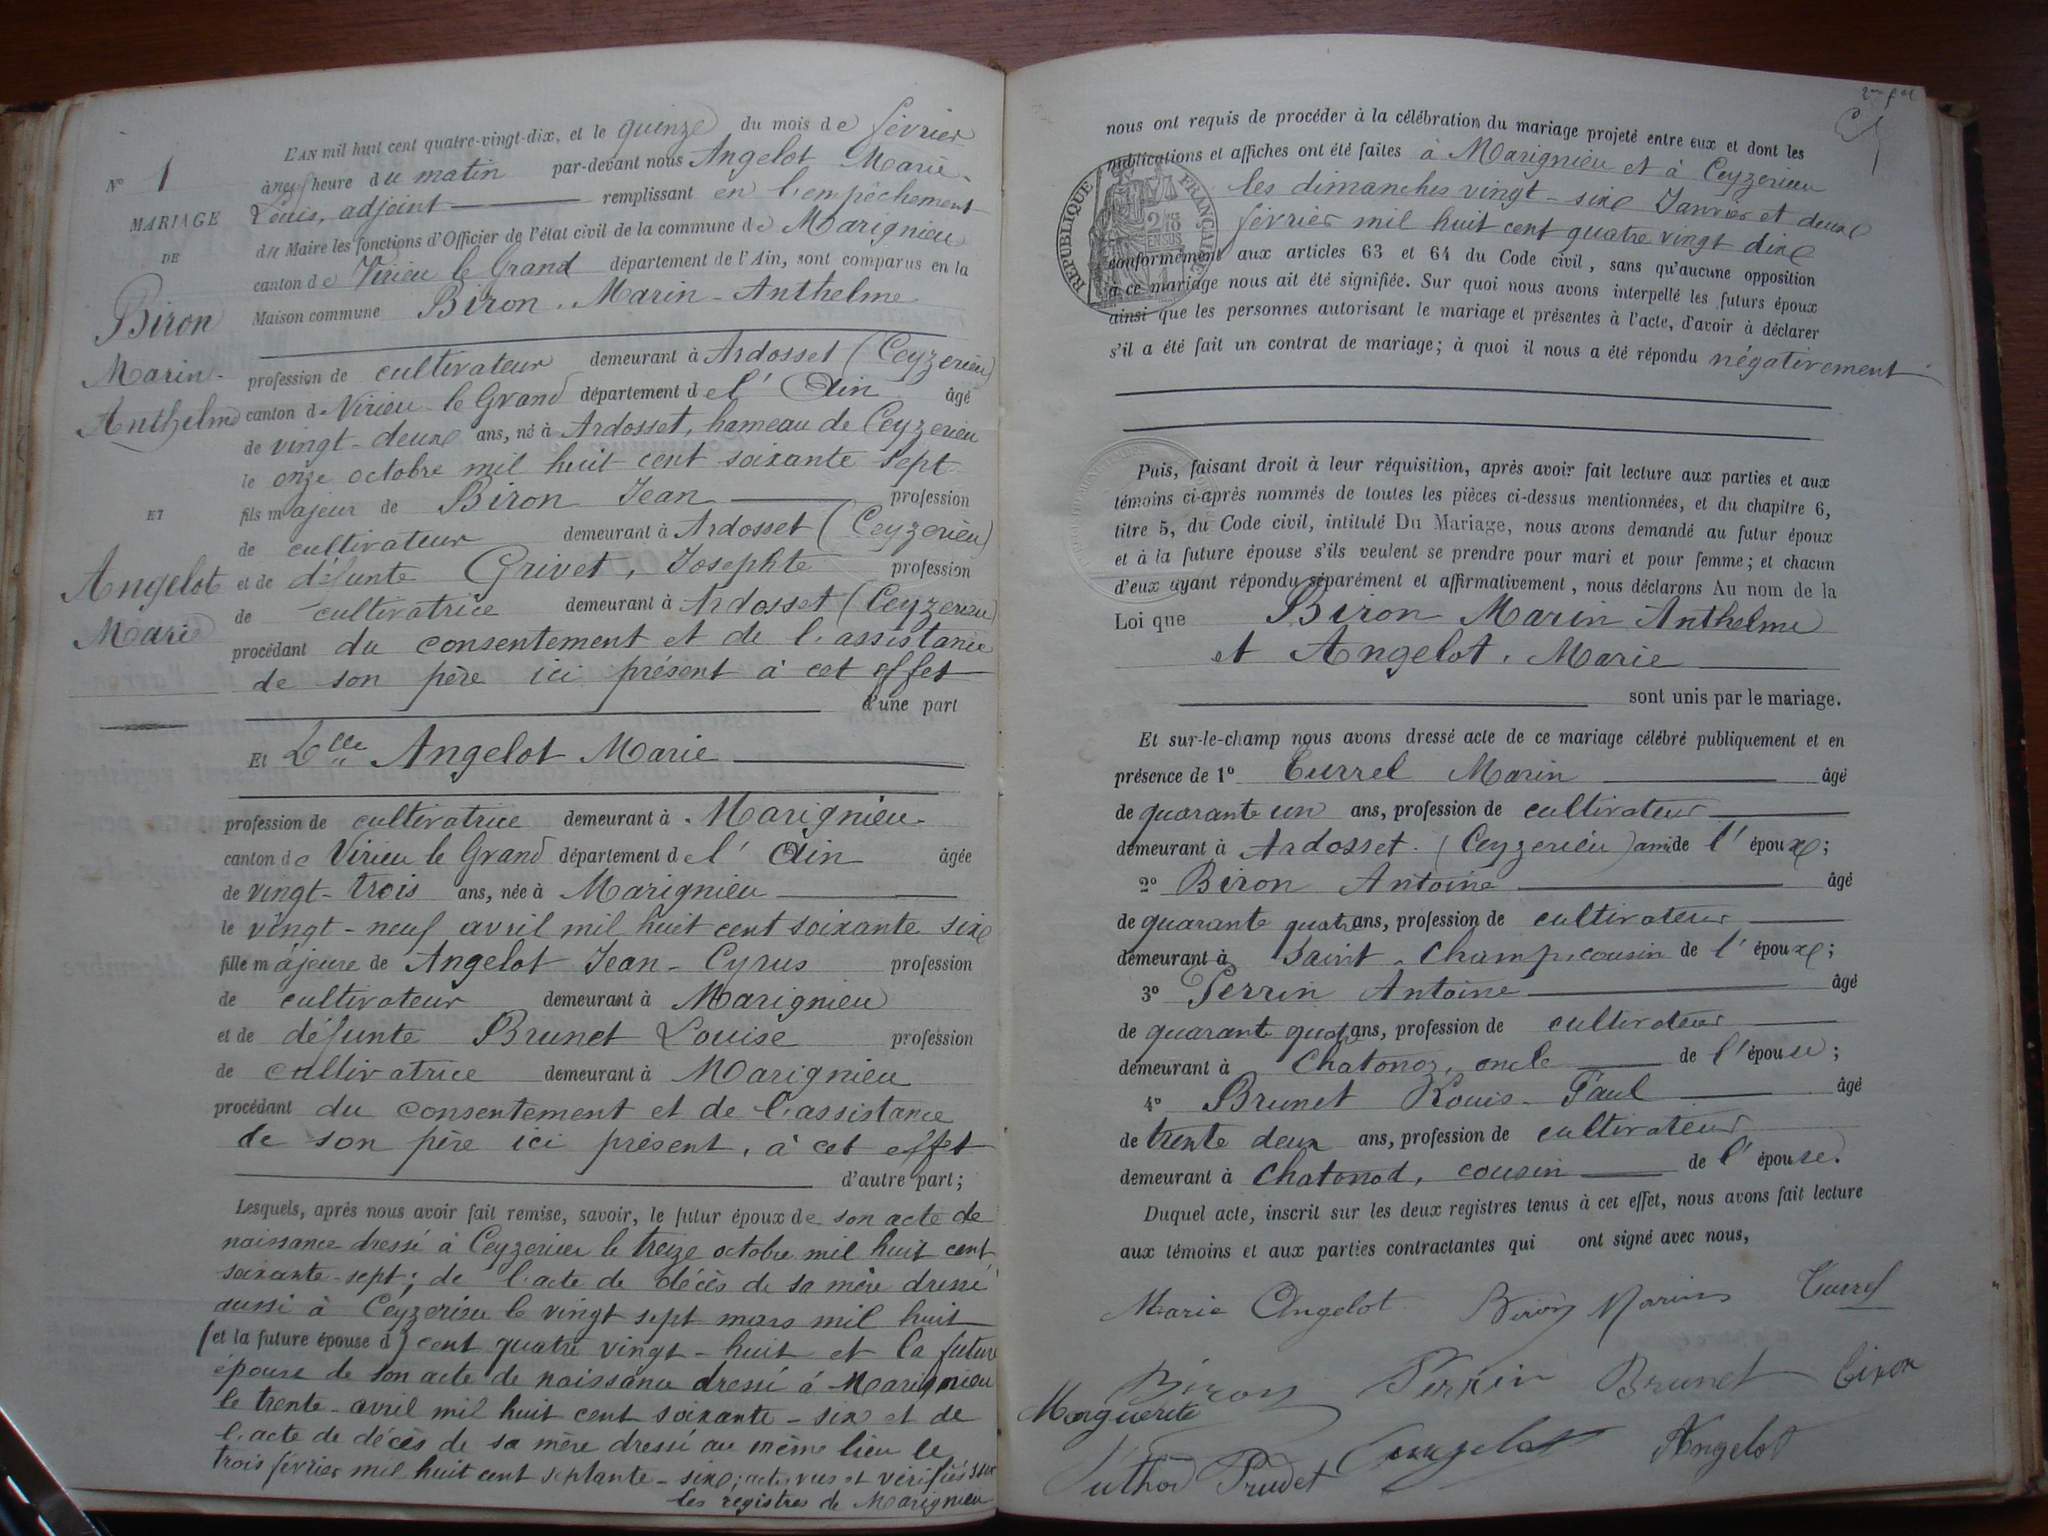 N° 1
MARIAGE
DE
Biron
Marin-
Anthelme
ET
Angelot
Marie
L'AN mil huit cent quatre-vingt-dix, et le quinze du mois de février
à neuf heure du matin par-devant nous Angelot Marie-
Louis, adjoint remplissant en l'empêchement
du Maire les fonctions d'Officier de l'état civil de la commune de Marignieu
canton de Virieu le Grand département de l'Ain, sont comparus en la
Maison commune Biron, Marin-Anthelme
profession de cultivateur demeurant à Ardosset (Ceyzerieu)
canton de Virieu-le Grand département de l'Ain âgé
de vingt-deux ans, né à Ardosset, hameau de Ceyzerieu
le onze octobre mil huit cent soixante sept
fils majeur de Biron Jean profession
de cultivateur demeurant à Ardosset (Ceyzerieu)
et de défunte Grivet, Josephte profession
de cultivatrice demeurant à Ardosset (Ceyzerieu)
procédant du consentement et de l'assistance
de son père ici présent à cet effet
d'une part
Et Dlle Angelot Marie
profession de cultivatrice demeurant à Marignieu
canton de Virieu le Grand département de l'Ain âgée
de vingt-trois ans, née à Marignieu
le vingt-neuf avril mil huit cent soixante six
fille majeure de Angelot Jean-Cyrus profession
de cultivateur demeurant à Marignieu
et de défunte Brunet Louise profession
de cultivatrice demeurant à Marignieu
procédant du consentement et de l'assistance
de son père ici présent, à cet effet
d'autre part;
Lesquels, après nous avoir fait remise, savoir, le futur époux de son acte de
naissance dressé à Ceyzerieu le treize octobre mil huit cent
soixante-sept; de l'acte de décès de sa mère dressé
aussi à Ceyzerieu le vingt sept mars mil huit
(et la future épouse d) cent quatre vingt-huit et la future
épouse de son acte de naissance dressé à Marignieu
le trente-avril mil huit cent soixante-six et de
l'acte de décès de sa mère dressé au même lieu le
trois février mil huit cent septante-six; actes vus et vérifiés sur
les registres de Marignieu
nous ont requis de procéder à la célébration du mariage projeté entre eux et dont les
publications et affiches ont été faites à Marignieu et à Ceyzerieu
les dimanches vingt-six Janvier et deux
février mil huit cent quatre vingt dix
RÉPUBLIQUE FRANÇAISE
conformément aux articles 63 et 64 du Code civil, sans qu'aucune opposition
à ce mariage nous ait été signifiée. Sur quoi nous avons interpellé les futurs époux
ainsi que les personnes autorisant le mariage et présentes à l'acte, d'avoir à déclarer
s'il a été fait un contrat de mariage; à quoi il nous a été répondu négativement
Puis, faisant droit à leur réquisition, après avoir fait lecture aux parties et aux
témoins ci-après nommés de toutes les pièces ci-dessus mentionnées, et du chapitre 6,
titre 5, du Code civil, intitulé Du Mariage, nous avons demandé au futur époux
et à la future épouse s'ils veulent se prendre pour mari et pour femme; et chacun
d'eux ayant répondu séparément et affirmativement, nous déclarons Au nom de la
Loi que Biron Marin Anthelme
et Angelot, Marie
sont unis par le mariage.
Et sur-le-champ nous avons dressé acte de ce mariage célébré publiquement et en
présence de 1° Turrel Marin âgé
de quarante un ans, profession de cultivateur
demeurant à Ardosset (Ceyzerieu) ami de l'époux;
2° Biron Antoine âgé
de quarante quatre ans, profession de cultivateur
demeurant à Saint-Champ, cousin de l'époux;
3° Perrin Antoine âgé
de quarante quatre ans, profession de cultivateur
demeurant à Chatonoz, oncle de l'épouse;
4° Brunet Louis-Paul âgé
de trente deux ans, profession de cultivateur
demeurant à Chatonod, cousin de l'épouse.
Duquel acte, inscrit sur les deux registres tenus à cet effet, nous avons fait lecture
aux témoins et aux parties contractantes qui ont signé avec nous,
Marie Angelot Biron Marin Turrel
Biron Perrin Brunet Biron
Marguerite
Prudet Angelot Angelot